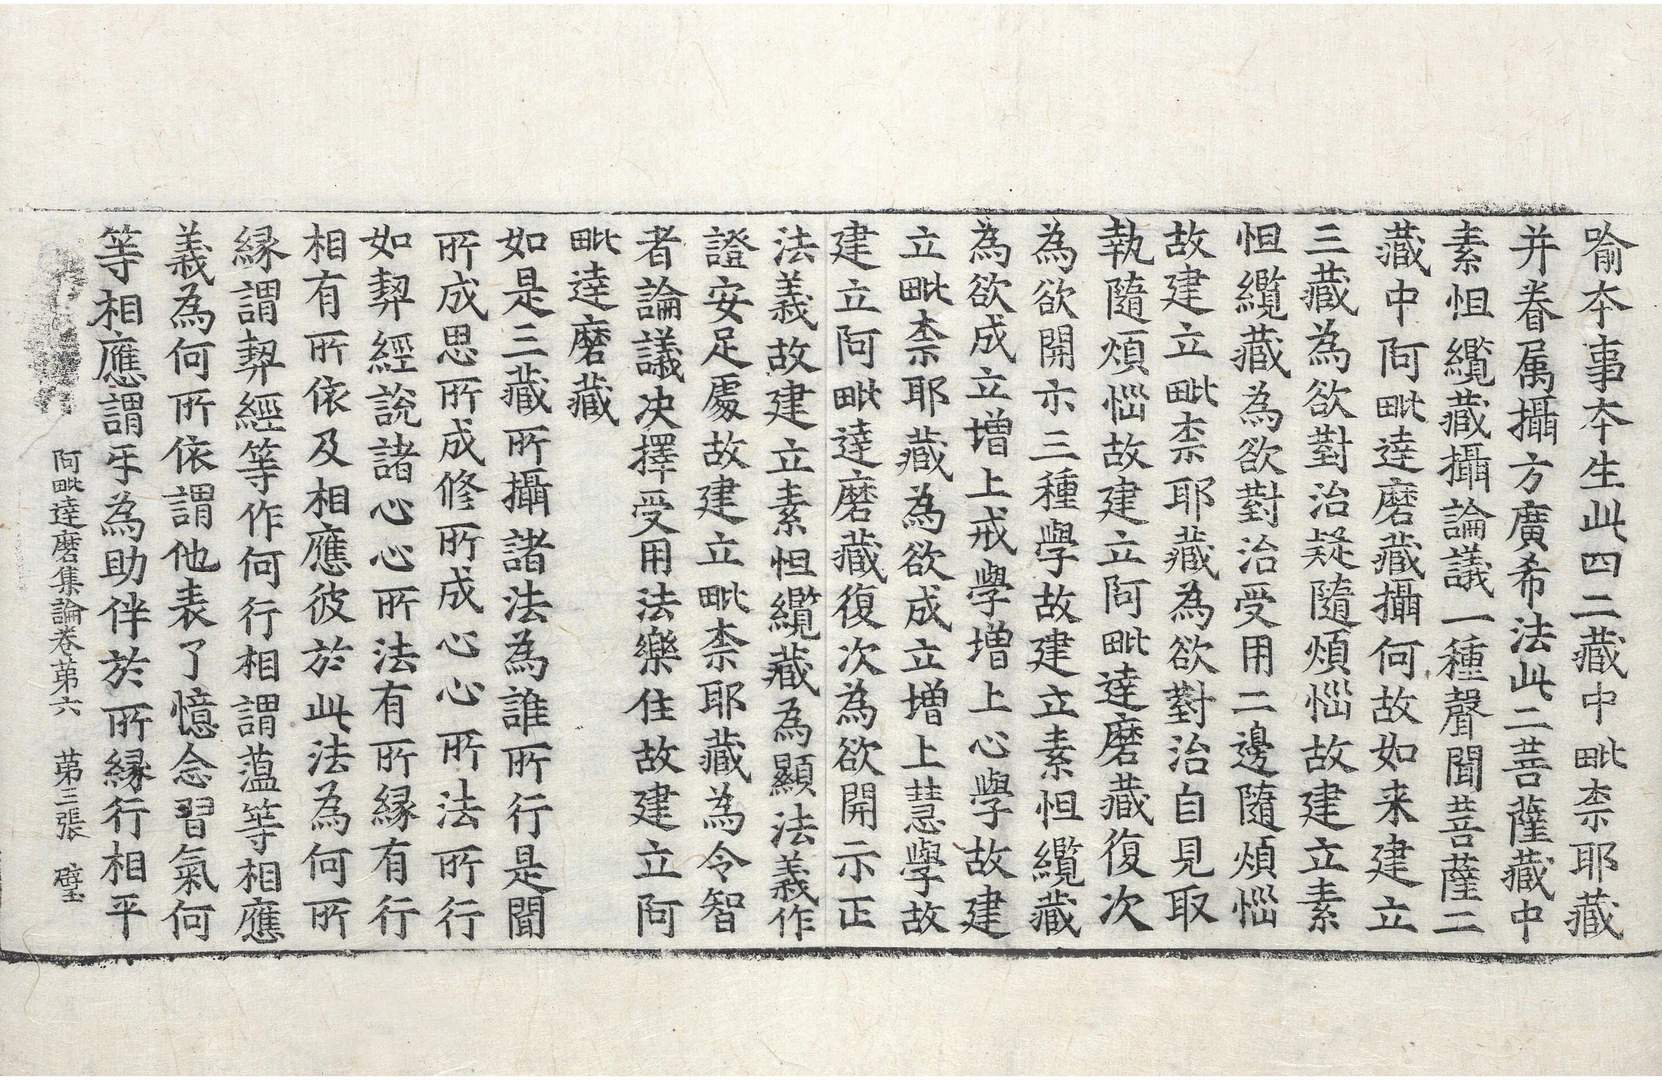 喻本事本生此四二藏中毗柰耶藏
并眷属攝方廣希法此二菩薩藏中
素怛纜藏攝論議一種聲聞菩薩二
藏中阿毗達磨藏攝何故如来建立
三藏為欲對治疑隨煩惱故建立素
怛纜藏為欲對治受用二邊隨煩惱
故建立毗柰耶藏為欲對治自見取
執隨煩惱故建立阿毗達磨藏復次
為欲開示三種學故建立素怛纜藏
為欲成立增上戒學增上心學故建
立毗柰耶藏為欲成立增上慧學故
建立阿毗達磨藏復次為欲開示正
法義故建立素怛纜藏為顯法義作
證安足處故建立毗柰耶藏為令智
者論議决擇受用法樂住故建立阿
毗達磨藏
如是三藏所攝諸法為誰所行是聞
所成思所成修所成心心所法所行
如契經說諸心心所法有所緣有行
相有所依及相應彼於此法為何所
緣謂契經等作何行相謂蘊等相應
義為何所依謂他表了憶念習氣何
等相應謂乐為助伴於所緣行相平
阿毗達磨集論卷苐六 苐三張 璧